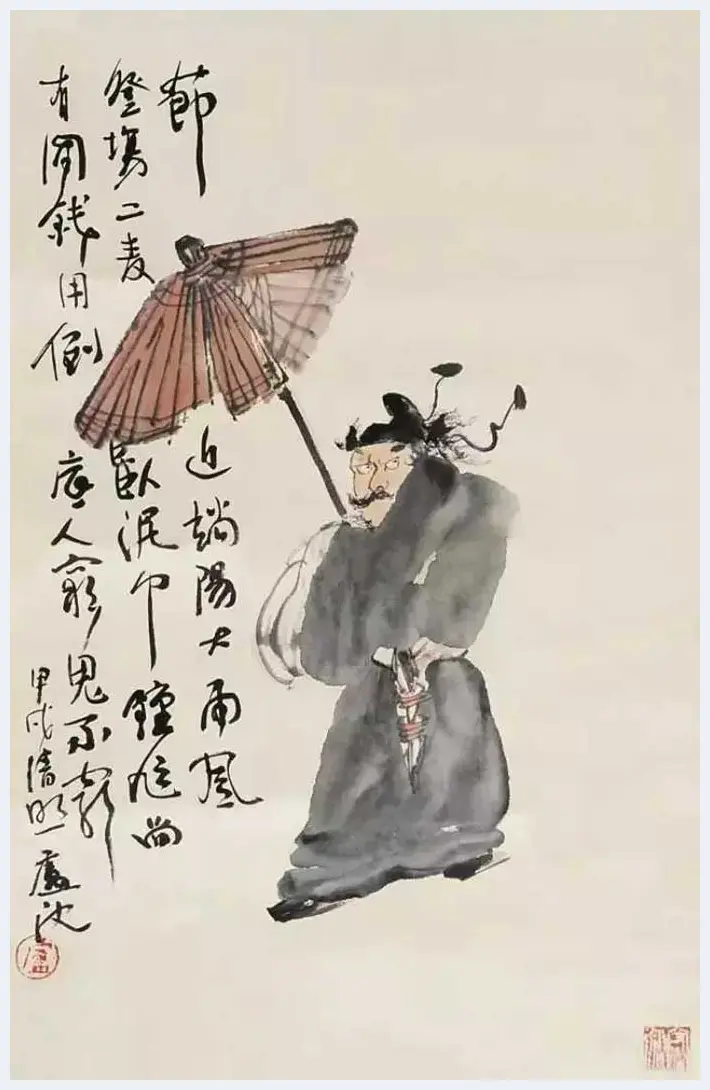 節近端陽大雨風
登場二麦臥泥中鍾馗尚
有閒錢用倒底人窮鬼不窮
甲戌清明盧沉
盧